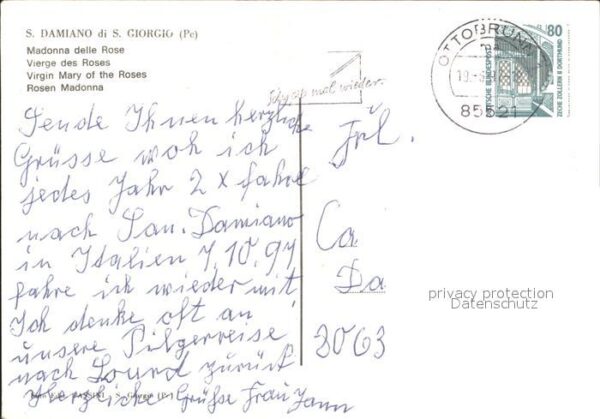 S. DAMIANO di S. GIORGIO (Pc)
Madonna delle Rose
Vierge des Roses
Virgin Mary of the Roses
Rosen Madonna
OTTOBRUNN
85521
80
DEUTSCHE BUNDESPOST
ZECHE ZOLLERN II DORTMUND
mal wieder.
Sende Ihnen herzliche
Grüsse woh ich
jedes Jahr 2 x fahre
nach San. Damiano
in Italien 7.10.94
fahre ich wieder mit
Ich denke oft an
unsere Pilgerreise
nach Lourd zurück
Herzliche Grüße Frau Jann
Frl.
Ca
Da
3063
privacy protection
Datenschutz